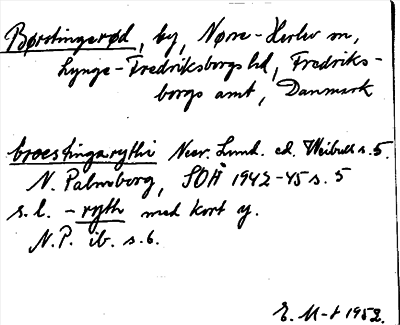 Børstingerød, by, Nørre-Herlev sn,
Lynge-Fredriksborgs hd, Fredriks-
borgs amt, Danmark
broestingarythi Necr. Lund. ed. Weibull s. 5.
N. Palmborg, SOÅ 1942-45 s. 5
s. l. - ryth med kort y.
N.P. ib. s. 6.
E. M-t 1952.